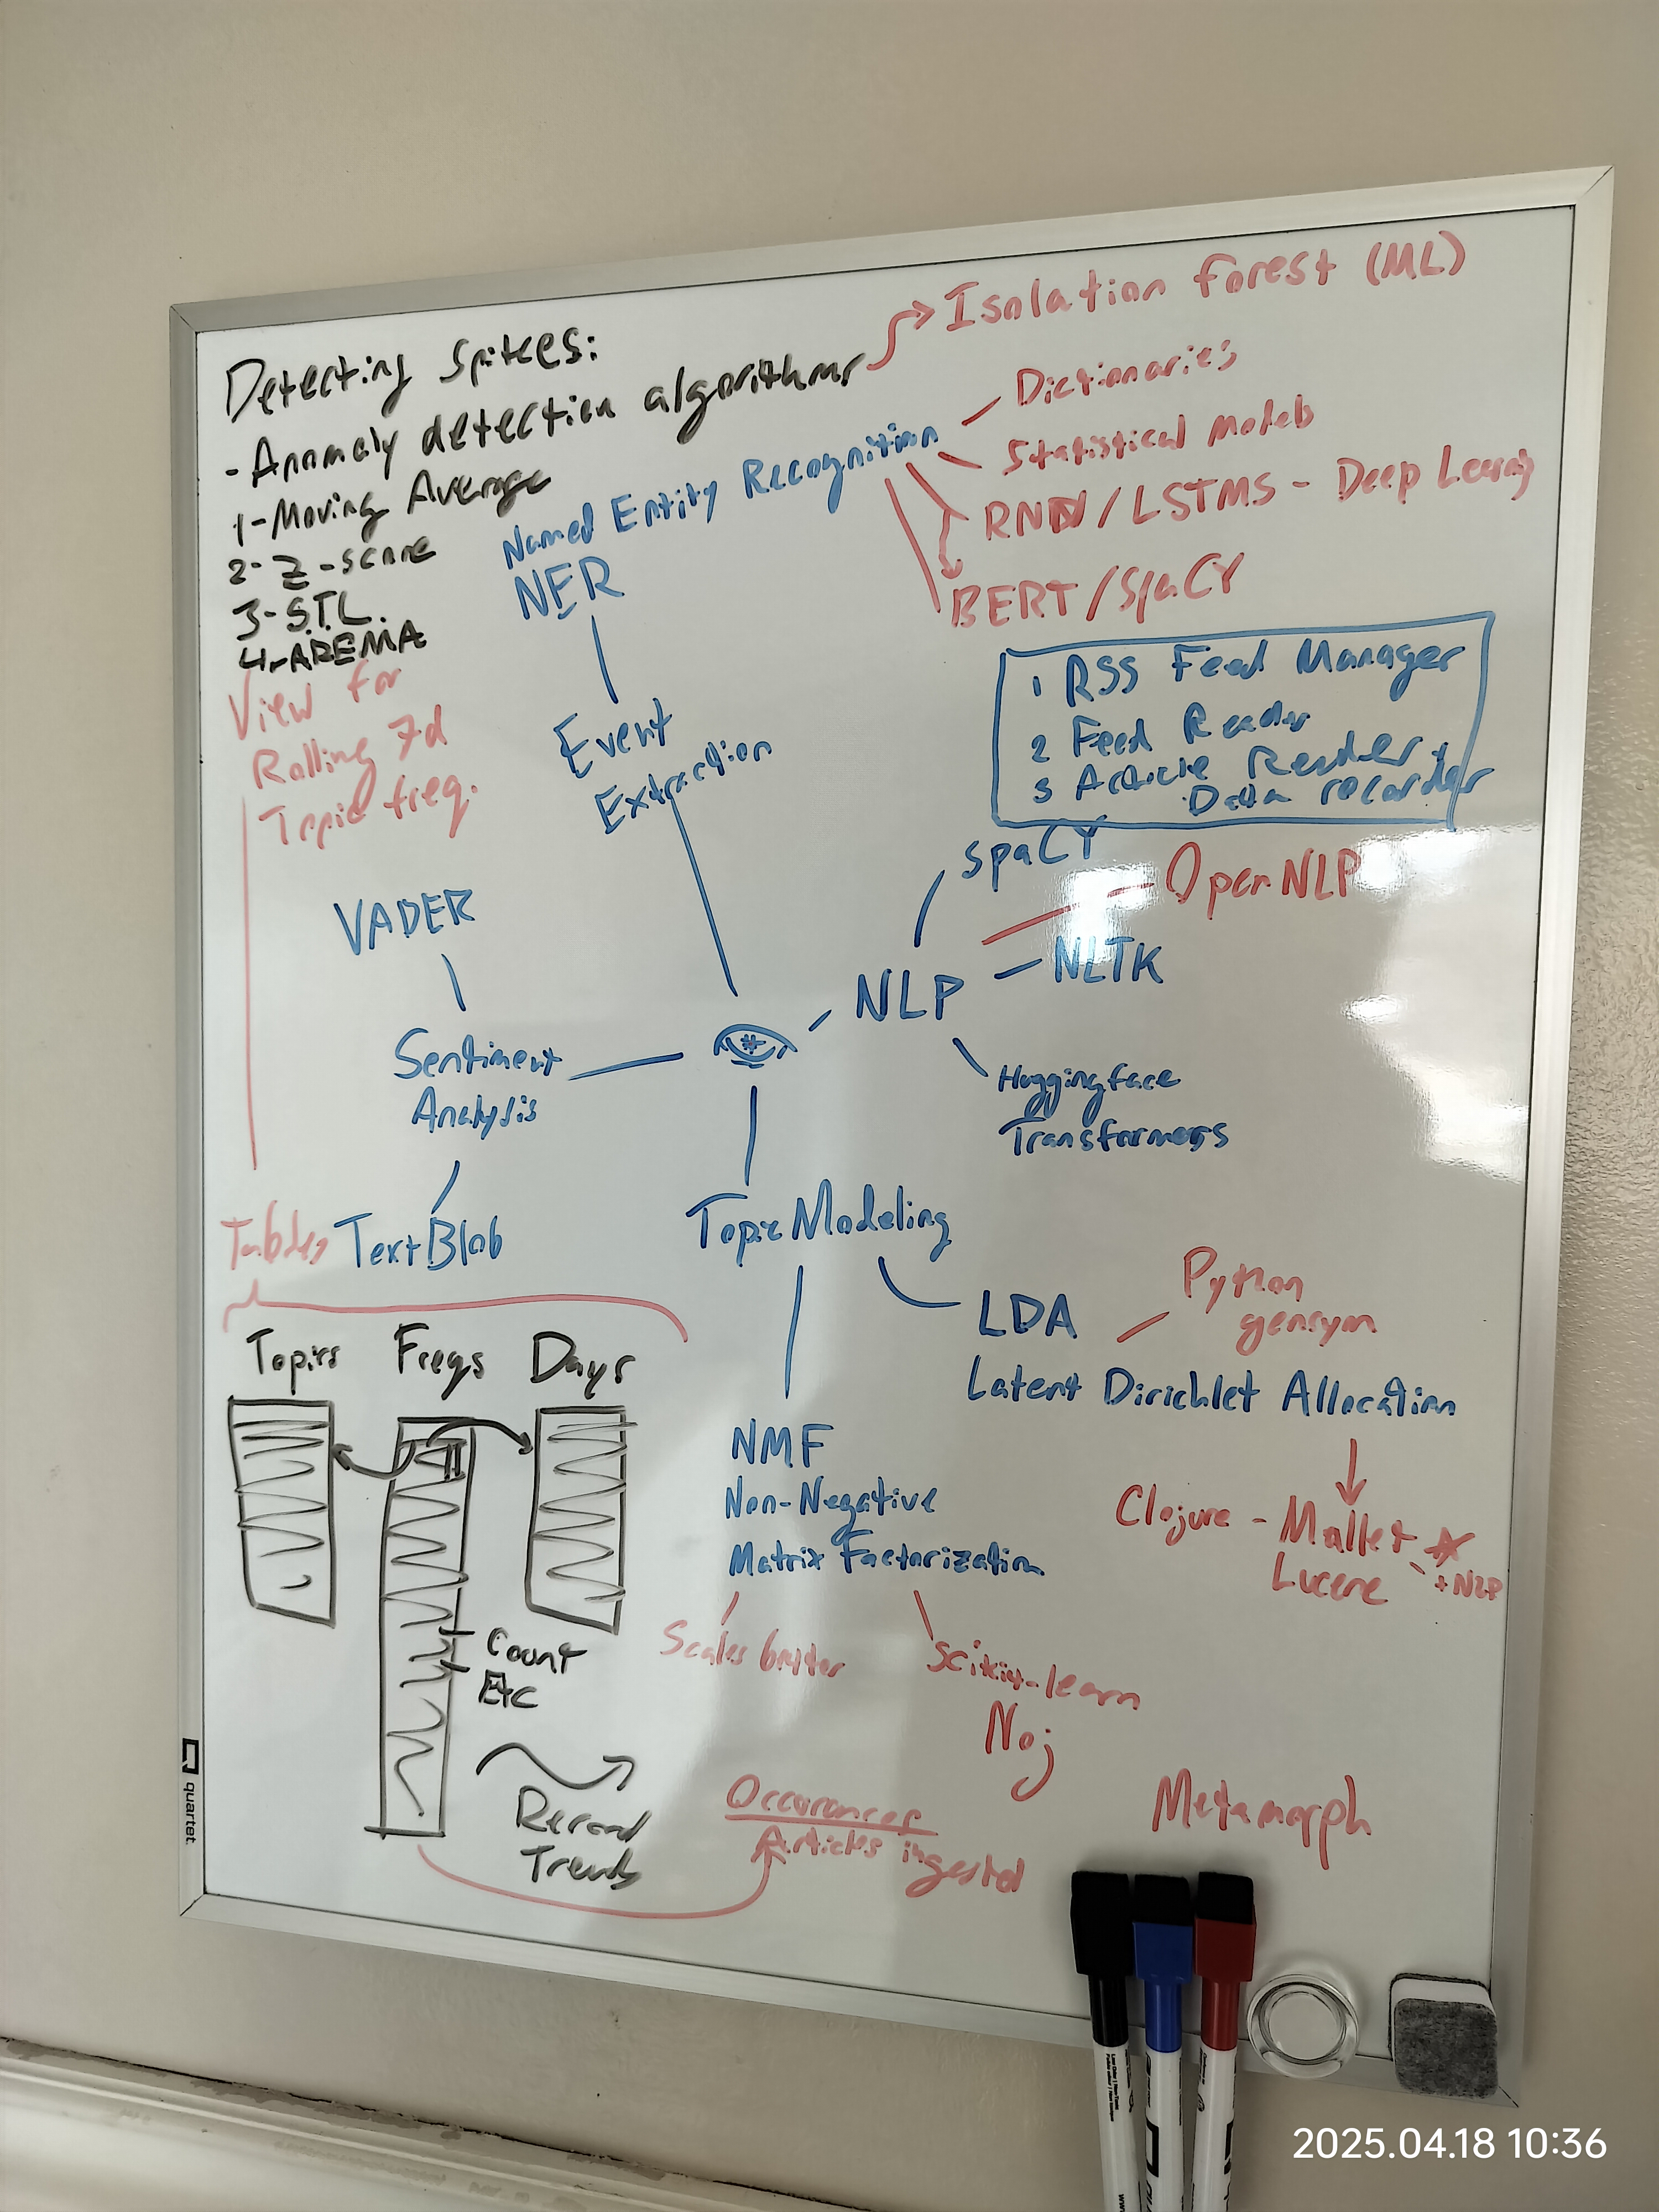 Isolation Forest (ML)
Detecting Spikes:
- Anomaly detection algorithms
1- Moving Average
2- Z-score
3- S.T.L.
4- AREMA
View for
Rolling 7d
Topic freq.
Named Entity Recognition
NER
Dictionaries
Statistical Models
RNN / LSTMS - Deep Learning
BERT / SpaCY
Event
Extraction
1 RSS Feed Manager
2 Feed Reader
3 Article Reader +
Data recorder
VADER
Sentiment
Analysis
TextBlob
spaCY
OpenNLP
NLP
NLTK
Huggingface
Transformers
Topic Modeling
LDA
Python
gensym
Latent Dirichlet Allocation
Clojure - Mallet
Lucene
+ NLP
NMF
Non-Negative
Matrix Factorization
Scales better
Scikit-learn
Noj
Metamorph
Tables
Topics Freqs Days
Count
Etc
Record
Trends
Occurances
Articles ingested
quartet.
2025.04.18 10:36